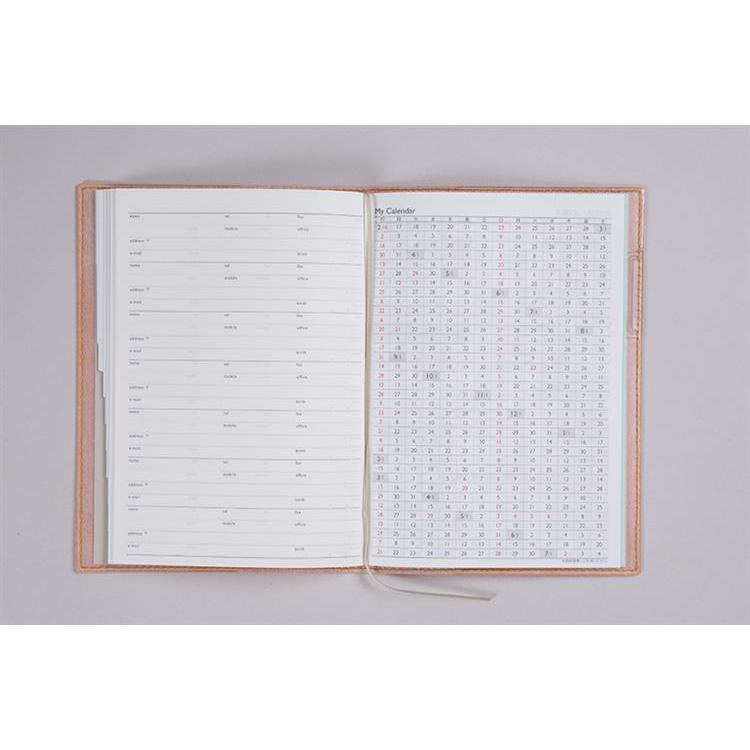 name tel fax
mobile office
address 〒
e-mail birth
name tel fax
mobile office
address 〒
e-mail birth
name tel fax
mobile office
address 〒
e-mail birth
name tel fax
mobile office
address 〒
e-mail birth
name tel fax
mobile office
address 〒
e-mail birth
name tel fax
mobile office
address 〒
e-mail birth
name tel fax
mobile office
address 〒
e-mail birth
My Calendar
日 月 火 水 木 金 土 日 月 火 水 木 金 土
2/16 17 18 19 20 21 22 23 24 25 26 27 28 3/1
2 3 4 5 6 7 8 9 10 11 12 13 14 15
16 17 18 19 20 21 22 23 24 25 26 27 28 29
30 31 4/1 2 3 4 5 6 7 8 9 10 11 12
13 14 15 16 17 18 19 20 21 22 23 24 25 26
27 28 29 30 5/1 2 3 4 5 6 7 8 9 10
11 12 13 14 15 16 17 18 19 20 21 22 23 24
25 26 27 28 29 30 31 6/1 2 3 4 5 6 7
8 9 10 11 12 13 14 15 16 17 18 19 20 21
22 23 24 25 26 27 28 29 30 7/1 2 3 4 5
6 7 8 9 10 11 12 13 14 15 16 17 18 19
20 21 22 23 24 25 26 27 28 29 30 31 8/1 2
3 4 5 6 7 8 9 10 11 12 13 14 15 16
17 18 19 20 21 22 23 24 25 26 27 28 29 30
31 9/1 2 3 4 5 6 7 8 9 10 11 12 13
14 15 16 17 18 19 20 21 22 23 24 25 26 27
28 29 30 10/1 2 3 4 5 6 7 8 9 10 11
12 13 14 15 16 17 18 19 20 21 22 23 24 25
26 27 28 29 30 31 11/1 2 3 4 5 6 7 8
9 10 11 12 13 14 15 16 17 18 19 20 21 22
23 24 25 26 27 28 29 30 12/1 2 3 4 5 6
7 8 9 10 11 12 13 14 15 16 17 18 19 20
21 22 23 24 25 26 27 28 29 30 31 1/1 2 3
4 5 6 7 8 9 10 11 12 13 14 15 16 17
18 19 20 21 22 23 24 25 26 27 28 29 30 31
2/1 2 3 4 5 6 7 8 9 10 11 12 13 14
15 16 17 18 19 20 21 22 23 24 25 26 27 28
3/1 2 3 4 5 6 7 8 9 10 11 12 13 14
15 16 17 18 19 20 21 22 23 24 25 26 27 28
29 30 31 4/1 2 3 4 5 6 7 8 9 10 11
12 13 14 15 16 17 18 19 20 21 22 23 24 25
26 27 28 29 30 5/1 2 3 4 5 6 7 8 9
10 11 12 13 14 15 16 17 18 19 20 21 22 23
24 25 26 27 28 29 30 31 6/1 2 3 4 5 6
7 8 9 10 11 12 13 14 15 16 17 18 19 20
21 22 23 24 25 26 27 28 29 30 7/1 2 3 4